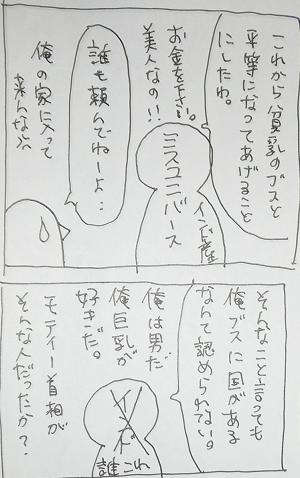 これから貧乳のブスと
平等になってあげること
にしたわ。
お金を下さい。
美人なの!!
ミスユニバース
インド産
誰も頼んでねーよ:
俺の家に入って
来んな
そんなこと言っても
俺ブスに国がある
なんて認められない。
俺は男だ
俺巨乳が
好きだ。
モディー首相が
そんな人だったか?
インド
誰これ